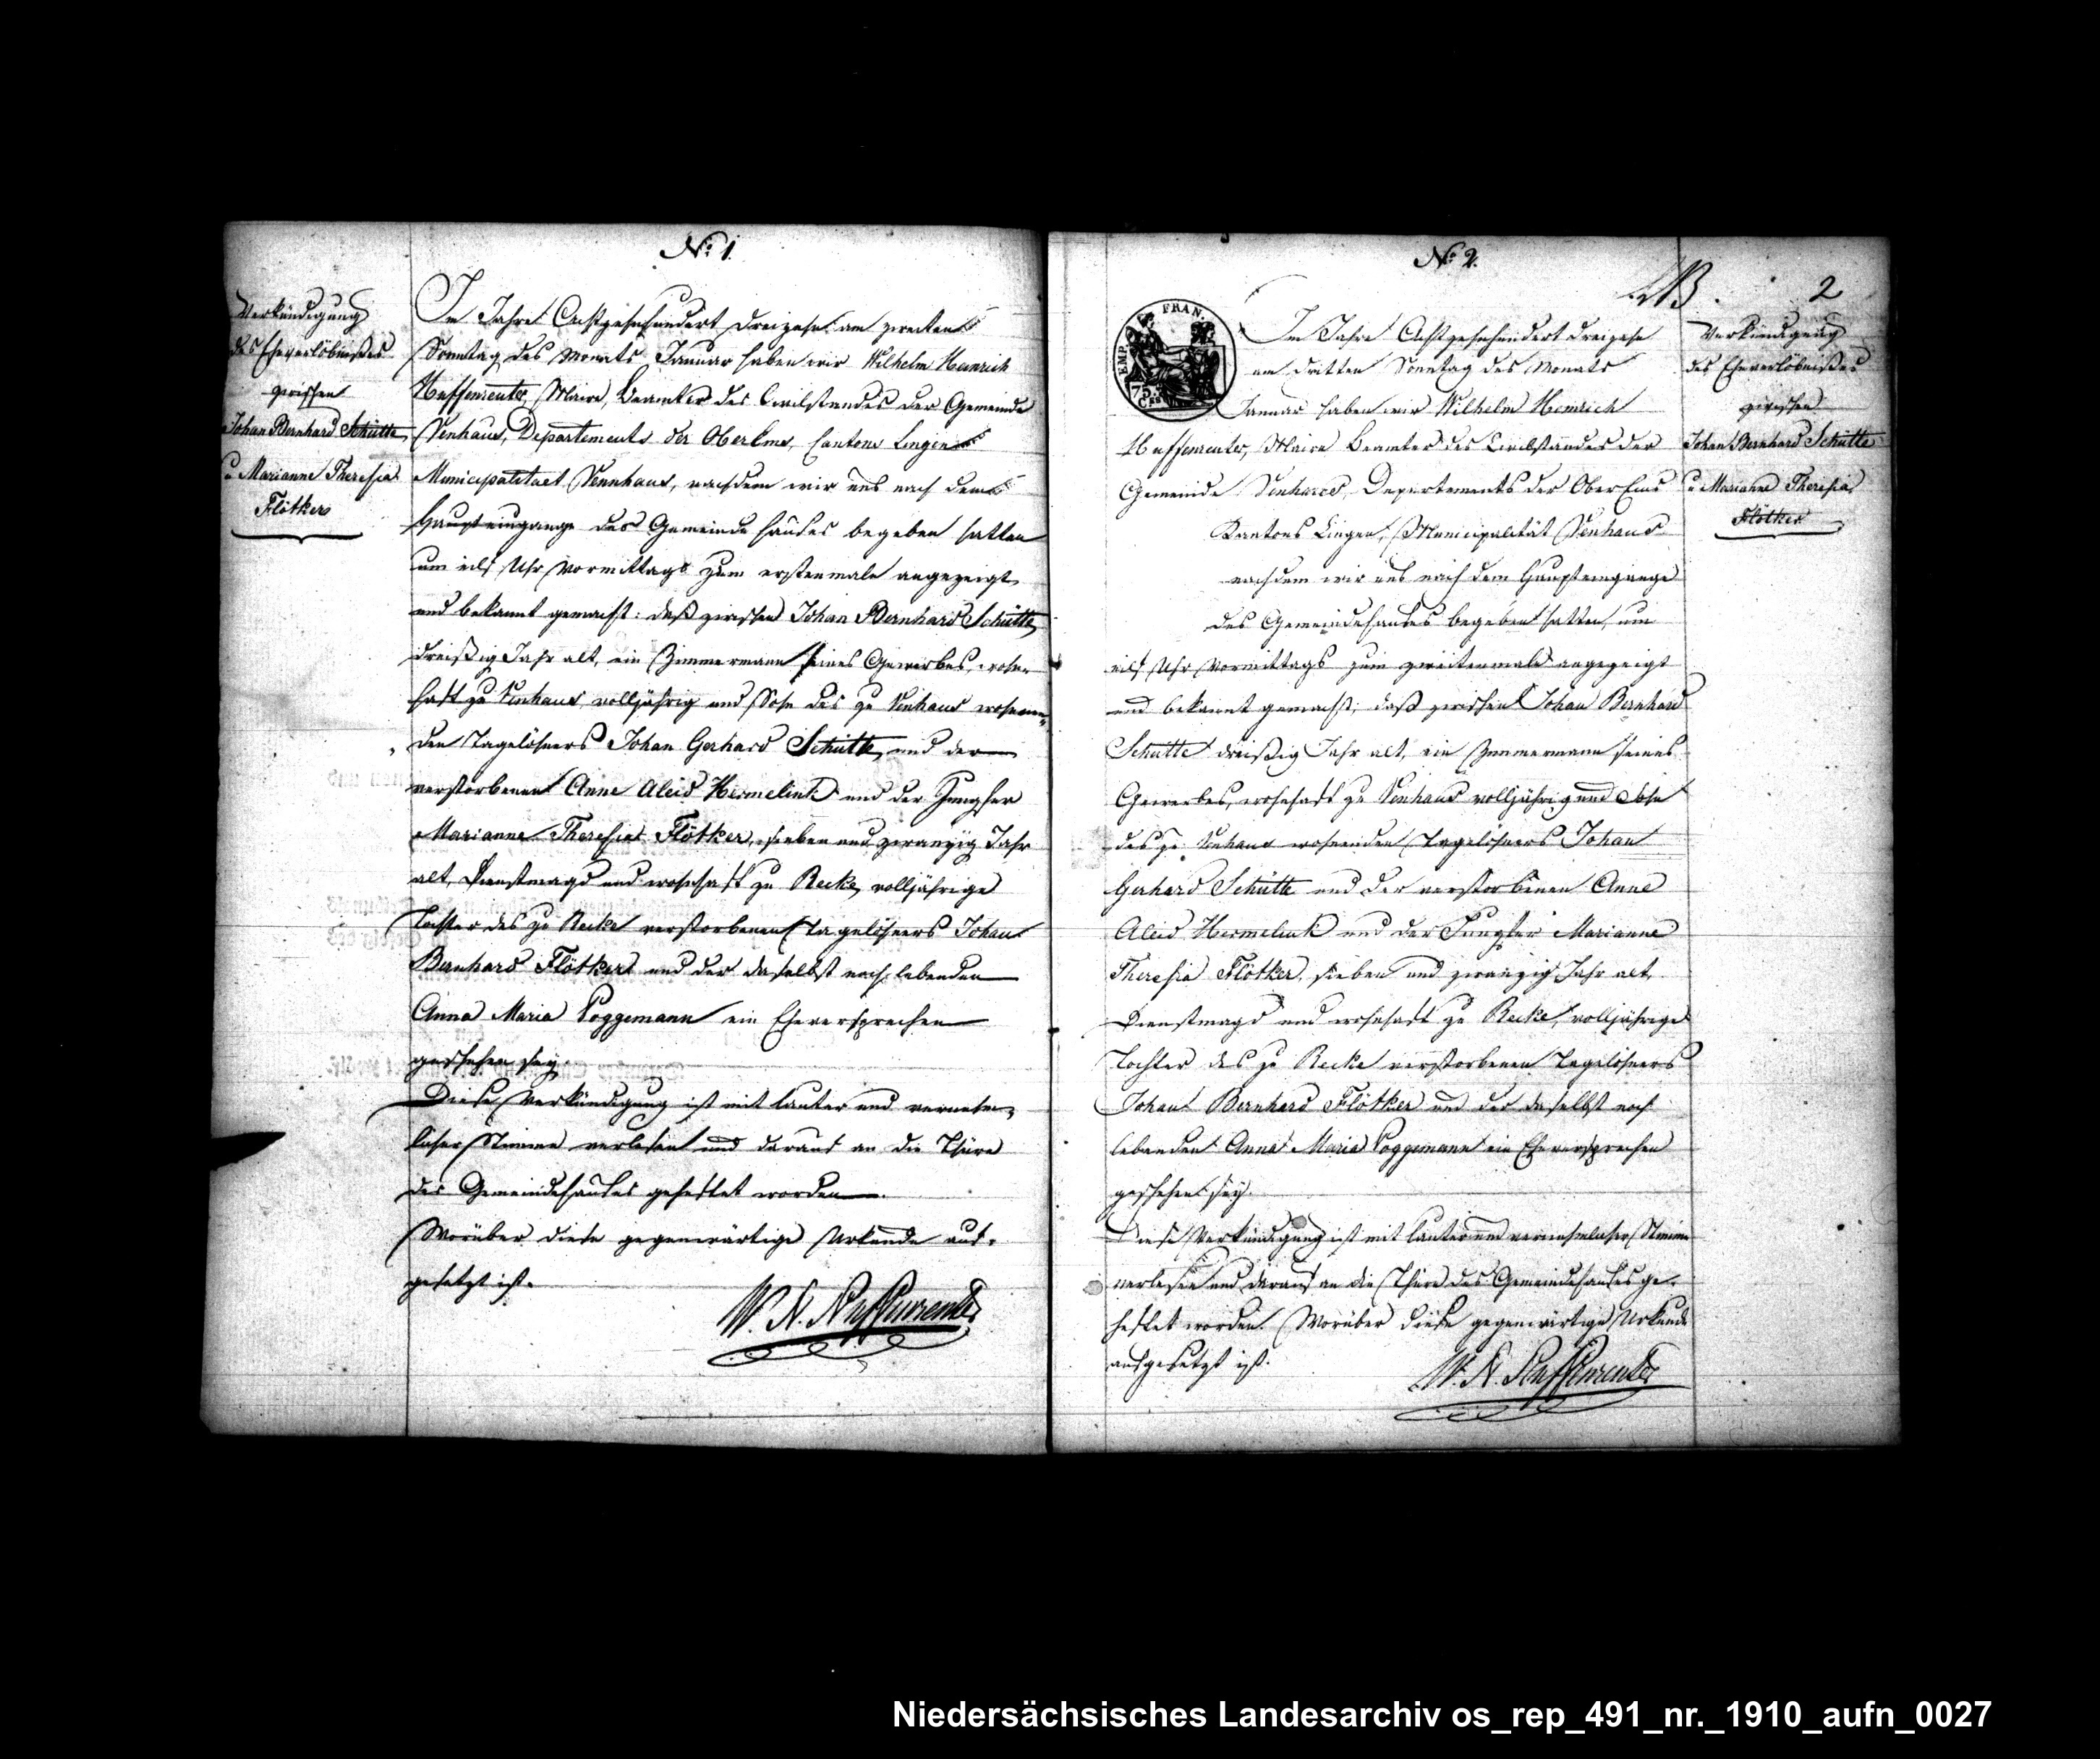 No. 1.
Verkündigung
des Eheverlöbnißes
zwischen
Johan Bernhard Schütte
u Marianne Theresia
Flötker
Im Jahre Achtzehnhundert dreizehn am zweiten
Sonntag des Monats Januar haben wir Wilhelm Heinrich
Maire, Beamter des Civilstandes der Gemeinde
Venhaus, Departements der OberEms, Cantons Lingen
Municipalitaet Vennhaus, nachdem wir uns nach dem
Haupteingange des Gemeindehauses begeben hatten
um eilf Uhr Vormittags zum erstenmale angezeigt
und bekannt gemacht: daß zwischen Johan Bernhard Schütte
dreißig Jahr alt, ein Zimmermann seines Gewerbes, wohn-
haft zu Venhaus, volljährig und Sohn des zu Venhaus wohnen-
den Tagelöhners Johan Gerhard Schütte, und der
verstorbenen Anne Aleid Hermelink und der Jungfer
Marianne Theresia Flötker, sieben und zwanzig Jahr
alt, Dienstmagd und wohnhaft zu Recke, volljährige
Tochter des zu Recke verstorbenen Tagelöhners Johan
Bernhard Flötker und der daselbst noch lebenden
Anna Maria Poggemann ein Eheversprechen
geschehen sey.
Diese Verkündigung ist mit lauter und vernehm-
licher Stimme verlesen und darauf an die Thüre
des Gemeindehauses geheftet worden.
Worüber diese gegenwärtige Urkunde auf-
gesetzt ist.
No. 2.
2
EMP. FRAN.
75.
Im Jahre Achtzehnhundert dreizehn
am dritten Sonntag des Monats
Januar haben wir Wilhelm Heinrich
Maire Beamter des Civilstandes der
Gemeinde Venhaus, Departements der OberEms
Kantons Lingen, Municipalität Venhaus
nachdem wir uns nach dem Haupteingange
des Gemeindehauses begeben hatten, um
eilf Uhr Vormittags zum zweitenmale angezeigt
und bekannt gemacht; daß zwischen Johan Bernhard
Schütte dreißig Jahr alt, ein Zimmermann seines
Gewerbes, wohnhaft zu Venhaus volljährig und Sohn
des zu Venhaus wohnenden Tagelöhners Johan
Gerhard Schütte und der verstorbenen Anne
Aleid Hermelink und der Jungfer Marianne
Theresia Flötker, sieben und zwanzig Jahr alt,
Dienstmagd und wohnhaft zu Recke, volljährige
Tochter des zu Recke verstorbenen Tagelöhners
Johan Bernhard Flötker und der daselbst noch
lebenden Anna Maria Poggemann ein Eheversprechen
geschehen sey.
Diese Verkündigung ist mit lauter und vernehmlicher Stimme
verlesen und darauf an die Thüre des Gemeindehauses ge-
heftet worden. Worüber diese gegenwärtige Urkunde
aufgesetzt ist.
Verkündigung
des Eheverlöbnißes
zwischen
Johan Bernhard Schütte
u Marianne Theresia
Flötker
Niedersächsisches Landesarchiv os_rep_491_nr._1910_aufn_0027